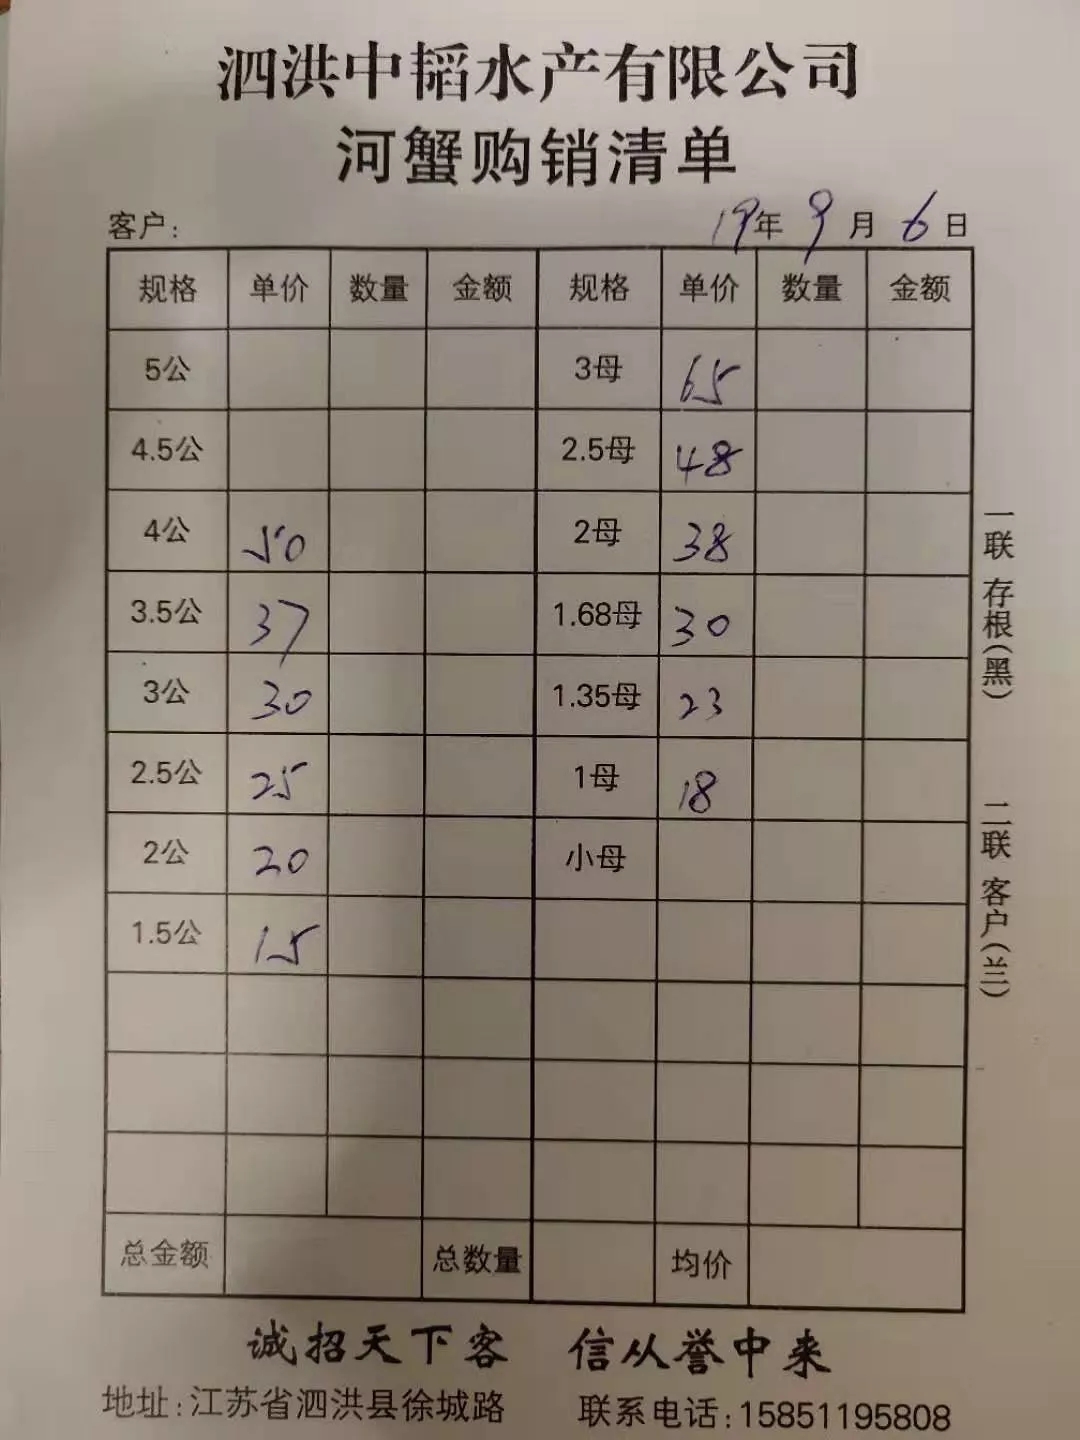 泗洪中韬水产有限公司
河蟹购销清单
客户: 19年 9月 6日
规格 单价 数量 金额 规格 单价 数量 金额
5公 3母 65
4.5公 2.5母 48
4公 50 2母 38
3.5公 37 1.68母 30
3公 30 1.35母 23
2.5公 25 1母 18
2公 20 小母
1.5公 15
总金额 总数量 均价
一联 存根(黑) 二联 客户(兰)
诚招天下客 信从誉中来
地址:江苏省泗洪县徐城路 联系电话:15851195808